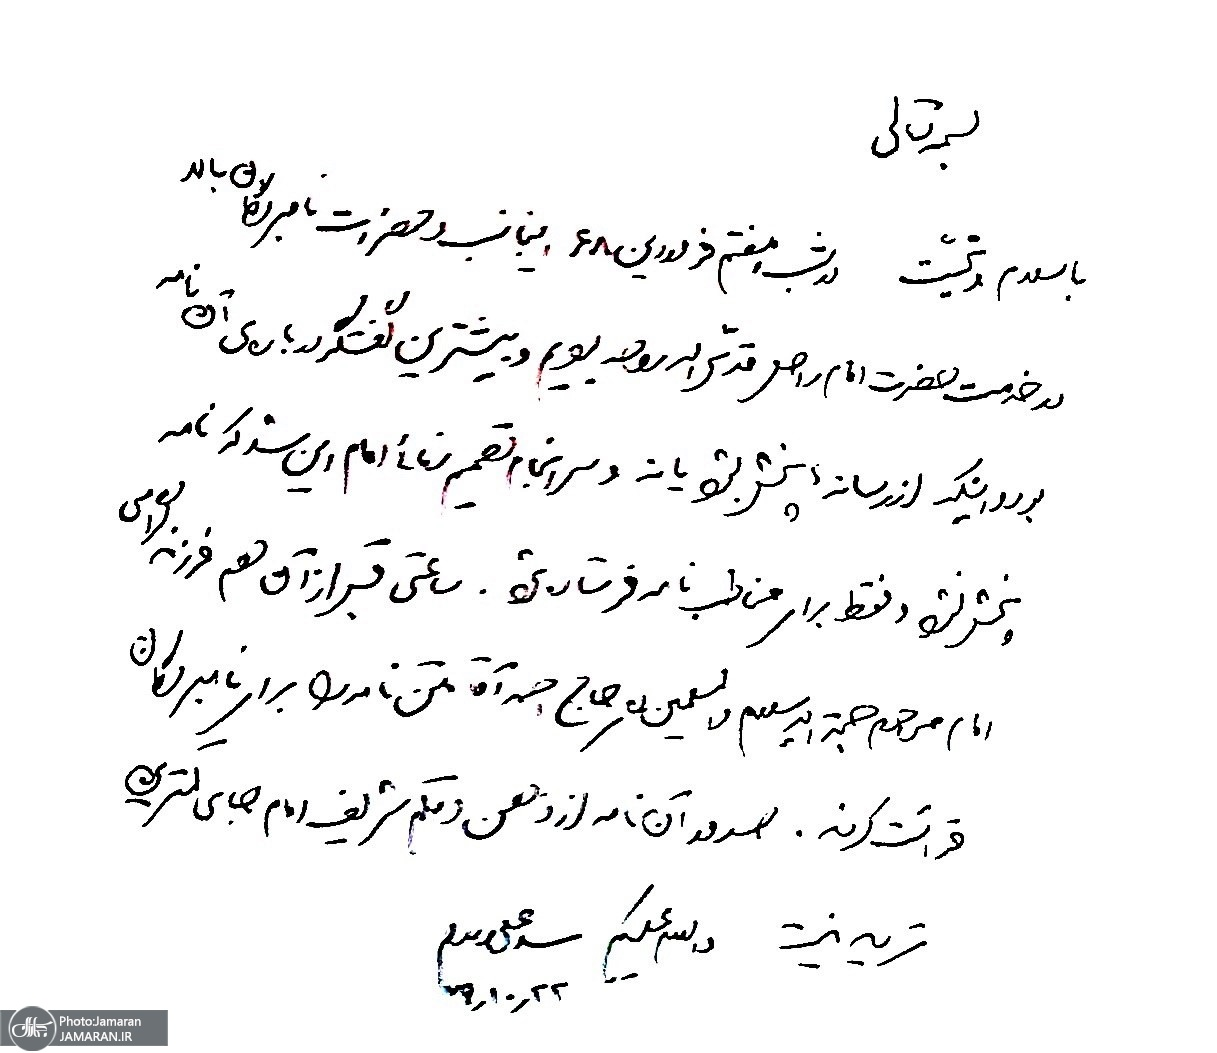 بسمه تعالی
با سلام و تحیّت در شب هفتم فروردین ۶۸ اینجانب و حضرات نامبردگان بالا
در خدمت حضرت امام راحل قدّس الله روحه بودیم و بیشترین گفتگو درباره‌ی آن نامه
بود و اینکه از رسانه‌ها پخش بشود یا نه و سرانجام تصمیم امام این شد که نامه
پخش نشود و فقط برای مخاطب نامه فرستاده شود. ساعتی قبل از آن هم فرزند گرامی
امام مرحوم حجة الاسلام والمسلمین حاج احمد آقا متن نامه را برای نامبردگان
قرائت کردند. صدور آن نامه از ذهن و قلم شریف امام جای کمترین
تردید نیست والسلام علیکم سید علی
۷۹,۱۰,۲۲
Photo:Jamaran
JAMARAN.IR